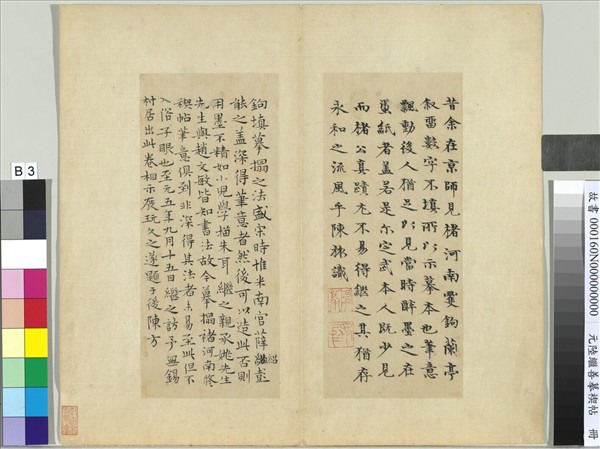 昔余在京師見褚河南雙鉤蘭亭
叙留數字不填所以示摹本也筆意
飄動後人猶足以見當時醉墨之在
蠒紙者蓋若是尔定武本人既少見
而褚公真蹟尤不易得繼之其猶存
永和之流風乎陳旅識
鉤填摹搨之法盛宋時惟米南宮薛紹彭
能之蓋深得筆意者然後可以造此否則
用墨不精如小兒學描朱耳繼之親承從先生
先生與趙文敏皆知書法故今摹搨褚河南脩
禊帖筆意俱到非深得其法者未易至此但不
入俗子眼也至元五年九月十五日繼之訪予無錫
村居出此卷相示展玩久之遂題于後陳方
B 3
故書 000160N000000000
元陸繼善摹禊帖 冊